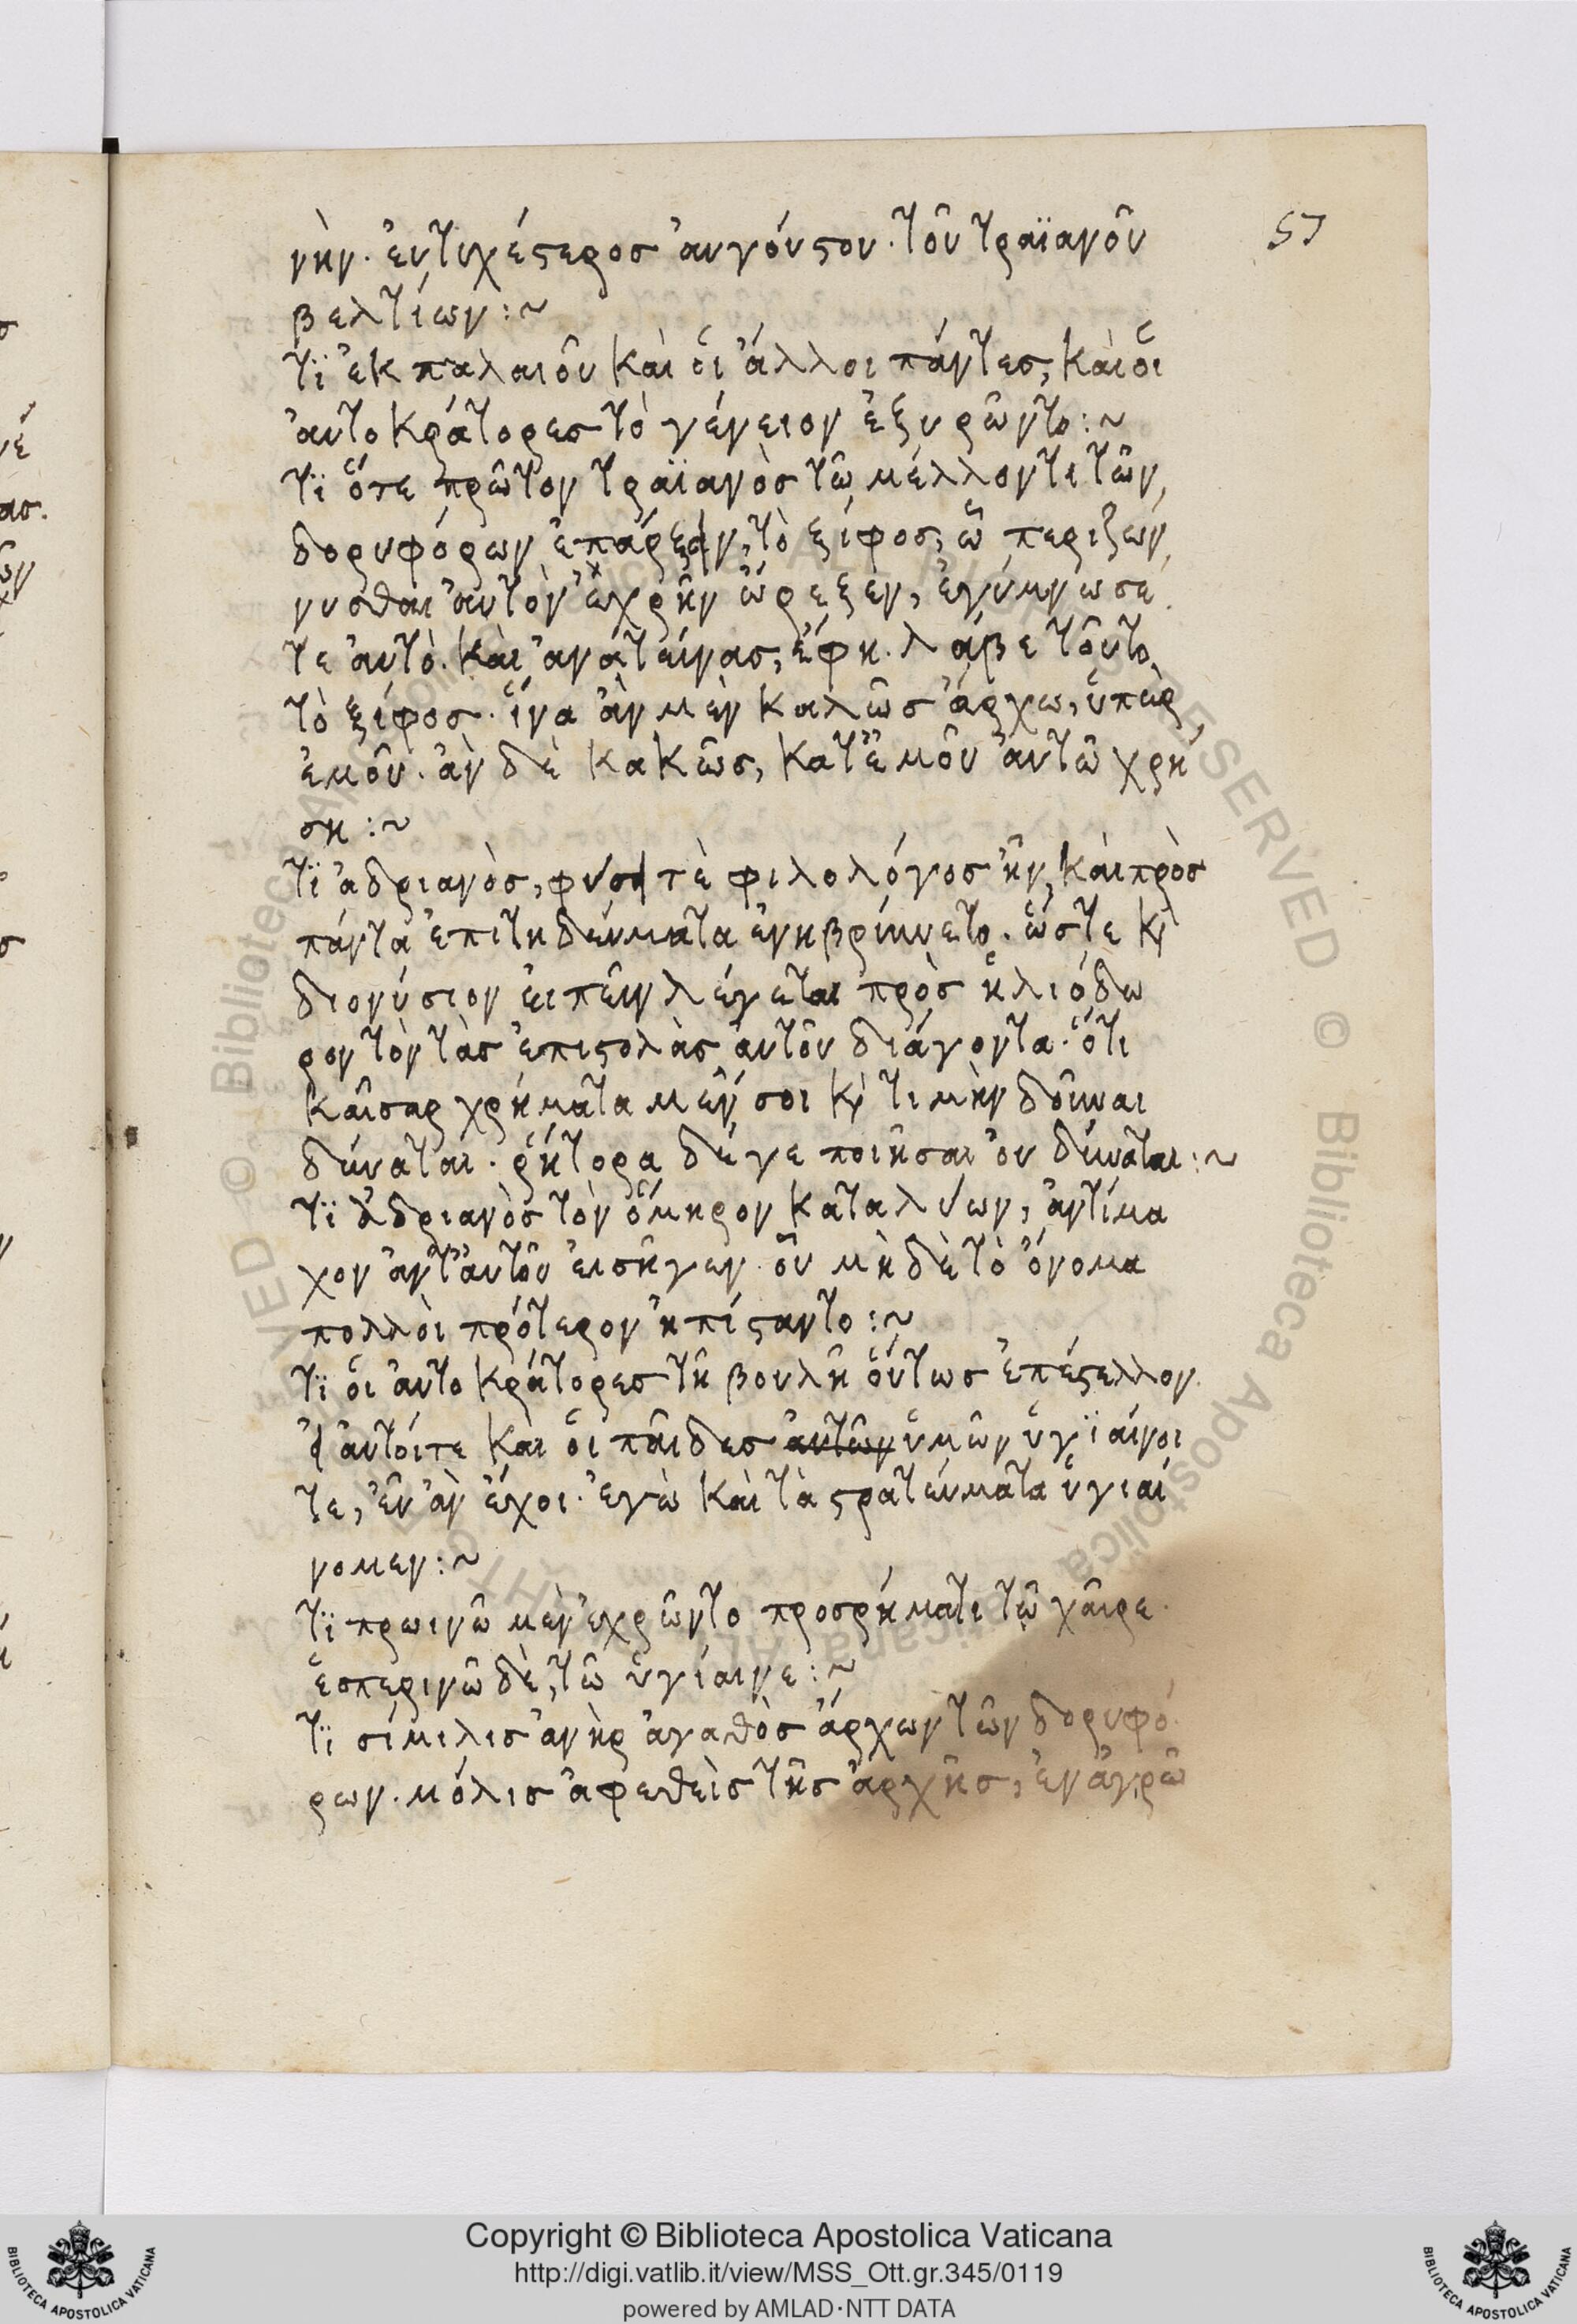 νὴν· ἐυτυχέστερος ἀυγούστου· τοῦ τραϊανοῦ
βελτίων:~
τϊ ἐκ παλαιοῦ καὶ ὁι ἄλλοι πάντες, καὶ ὁι
ἀυτοκράτορες τὸ γένειον ἐξυρῶντο:~
τϊ ὅτε πρῶτον τραϊανὸς τῶ μέλλοντι τῶν
δορυφόρων ἐπάρξειν, τὸ ξίφος, ὧ περιζών
νυσθαι ἀυτὸν ἐχρῆν ὤρεξεν, ἐγύμνωσέ
τε ἀυτὸ· καὶ ἀνατείνας, ἔφη· λάβε τοῦτο
τὸ ξίφος· ἵνα ἂν μὲν καλῶς ἄρχω, ὑπὲρ
ἐμοῦ· ἂν δὲ κακῶς, κατ' ἐμοῦ ἀυτῶ χρή
ση:~
τϊ ἀδριανὸς, φύσει τὲ φιλολόγος ἦν, καὶ πρὸς
πάντα ἐπιτηδεύματα ἐνηβρύνετο· ὥστε κ̀
διονύσιον ἐιπεῖν λέγεται πρὸς ἡλιόδω
ρον τὸν τὰς ἐπιστολὰς ἀυτοῦ διάγοντα· ὅτι
καῖσαρ χρήματα μέν σοι κ̀ τιμὴν δοῦναι
δύναται· ῥήτορα δέ γε ποιῆσαι ὀυ δύναται:~
τϊ ἀδριανὸς τὸν ὅμηρον καταλύων, ἀντίμα
χον ἀντ' ἀυτοῦ ἐισῆγεν· οὗ μὴ δὲ τὸ ὄνομα
πολλὸι πρότερον ἠπίσταντο:~
τϊ ὁι ἀυτοκράτορες τῆ βουλῆ ὅυτως ἐπέστελλον·
ἐι ἀυτόιτε καὶ ὁι παῖδες ἀυτῶν ὑμῶν ὑγϊαίνοι
τε, ἐῦ ἂν ἔχοι· ἐγὼ καὶ τὰ στρατεύματα ὑγιαί
νομεν:~
τϊ πρωινῶ μὲν ἐχρῶντο προσρήματι τῶ χαῖρε·
ἑσπερινῶ δὲ, τῶ ὑγίαινε:~
τϊ σίμιλις ἀνὴρ ἀγαθὸς ἄρχων τῶν δορυφό
ρων· μόλις ἀφεθεὶς τῆς ἀρχῆς, ἐν ἀγρῶ
57
Copyright © Biblioteca Apostolica Vaticana
http://digi.vatlib.it/view/MSS_Ott.gr.345/0119
powered by AMLAD·NTT DATA